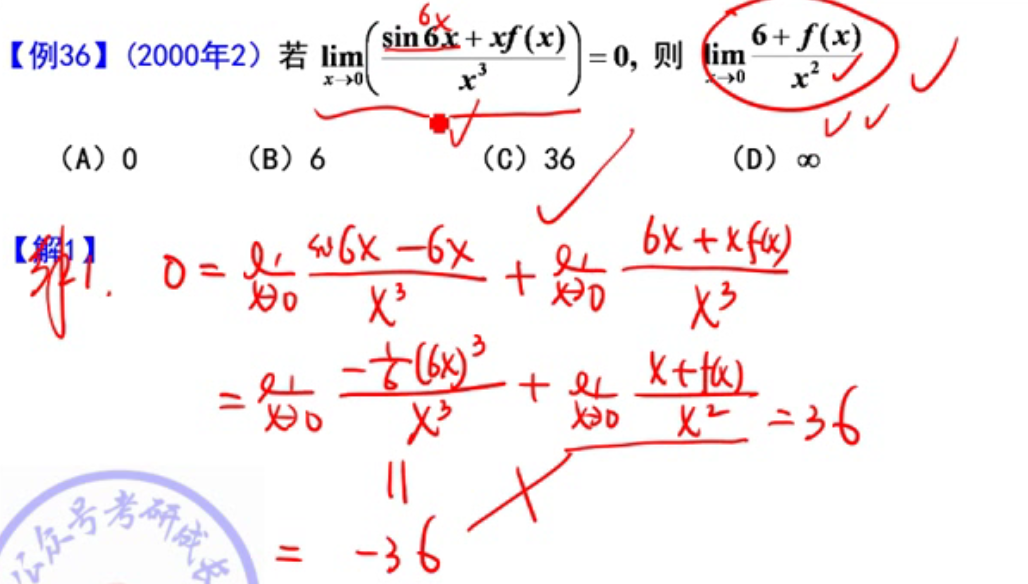 【例36】(2000年2) 若 lim_{x→0}((sin6x + xf(x))/x³) = 0, 则 lim_{x→0} (6 + f(x))/x²
6x
(A) 0 (B) 6 (C) 36 (D) ∞
【解1】
0 = lim_{x→0} (sin6x − 6x)/x³ + lim_{x→0} (6x + xf(x))/x³
= lim_{x→0} (−1/6 (6x)³)/x³ + lim_{x→0} (x + f(x))/x² = 36
||
= −36
公众号考研成